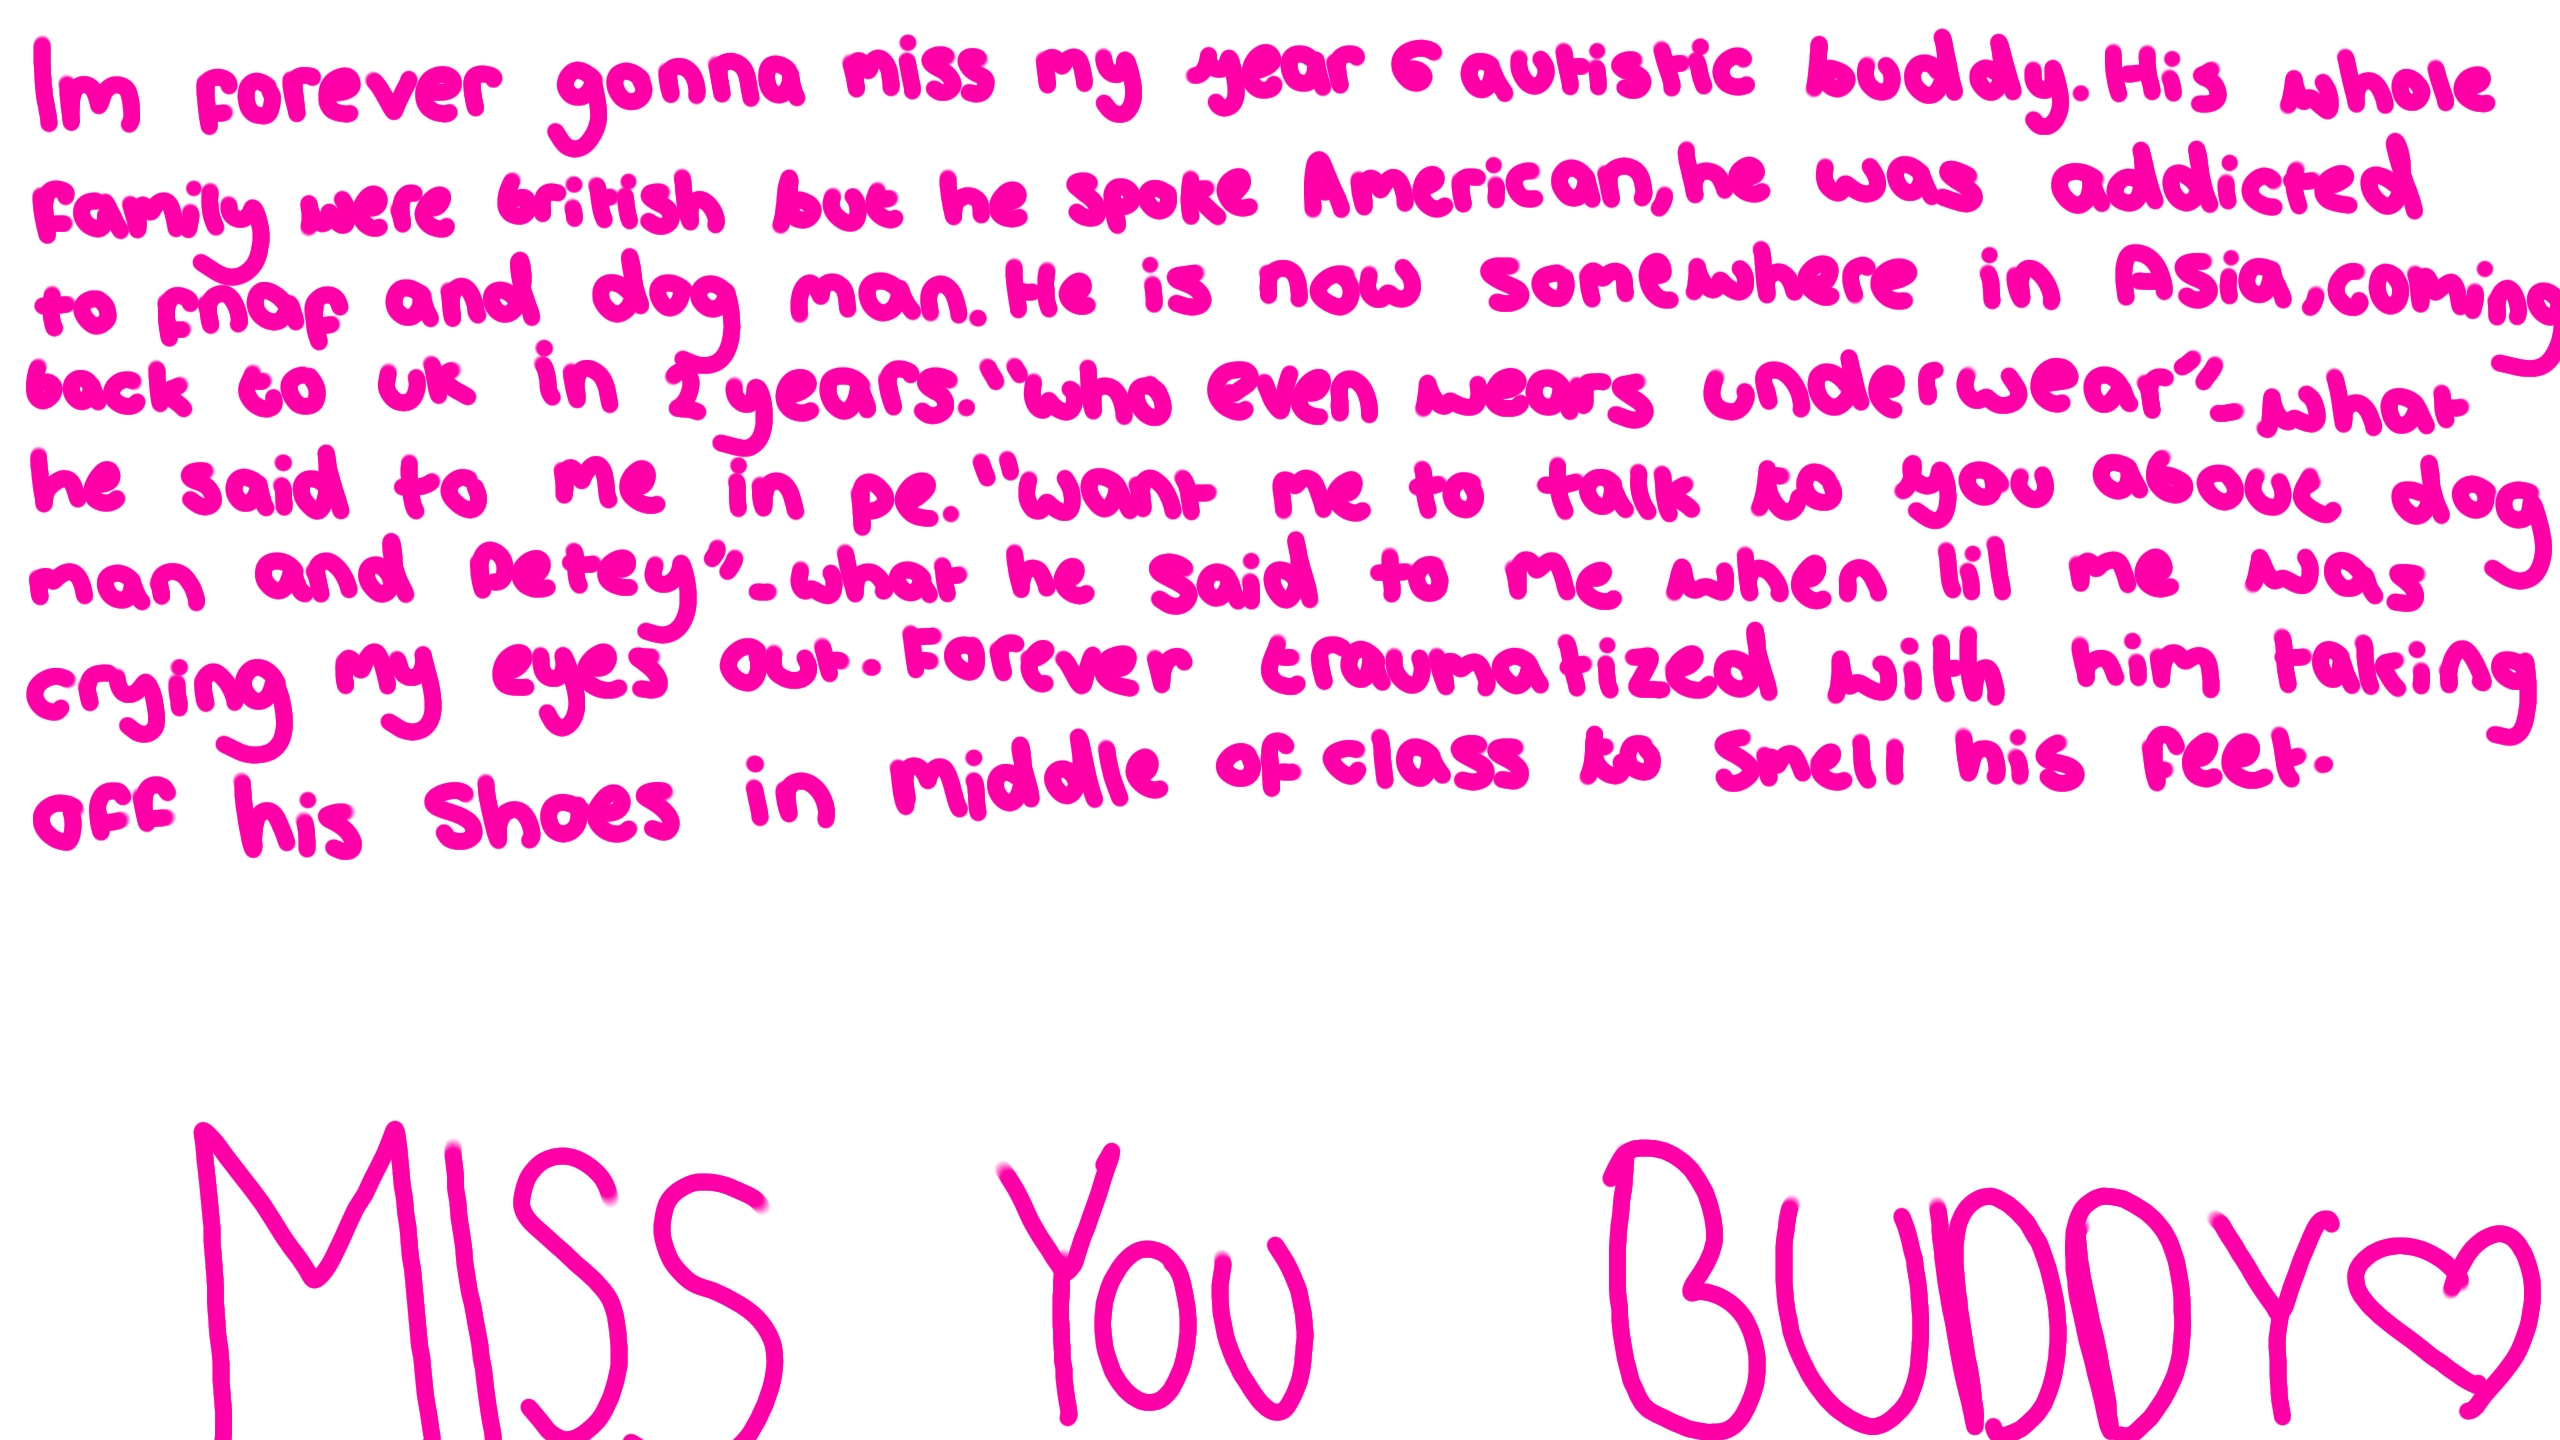 Im forever gonna miss my year 6 autistic buddy. His whole
family were british but he spoke American, he was addicted
to fnaf and dog man. He is now somewhere in Asia, coming
back to uk in 2 years. "who even wears underwear" - what
he said to me in pe. "want me to talk to you about dog
man and Petey" - what he said to me when lil me was
crying my eyes out. Forever traumatized with him taking
off his shoes in middle of class to smell his feet.
MISS YOU BUDDY♡